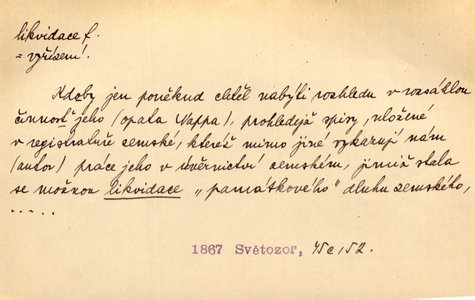 likvidace f.
= vyřízení.
Kdoby jen poněkud chtěl nabýti rozhledu v rozsáhlou
činnost jeho (opata Nappa), prohledejž spisy, uložené
v registratuře zemské, kteréž mimo jiné vykazují nám
(autor) práce jeho v úvěrnictví zemském, jimiž stala
se možnou likvidace „památkového" dluhu zemského,
.....
1867 Světozor,